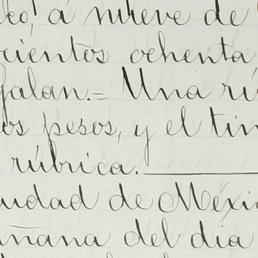 leo, á nueve de
cientos ochenta
Galan.= Una rú
os pesos, y el tim
rúbrica.
udad de Méxi
ñana del dia